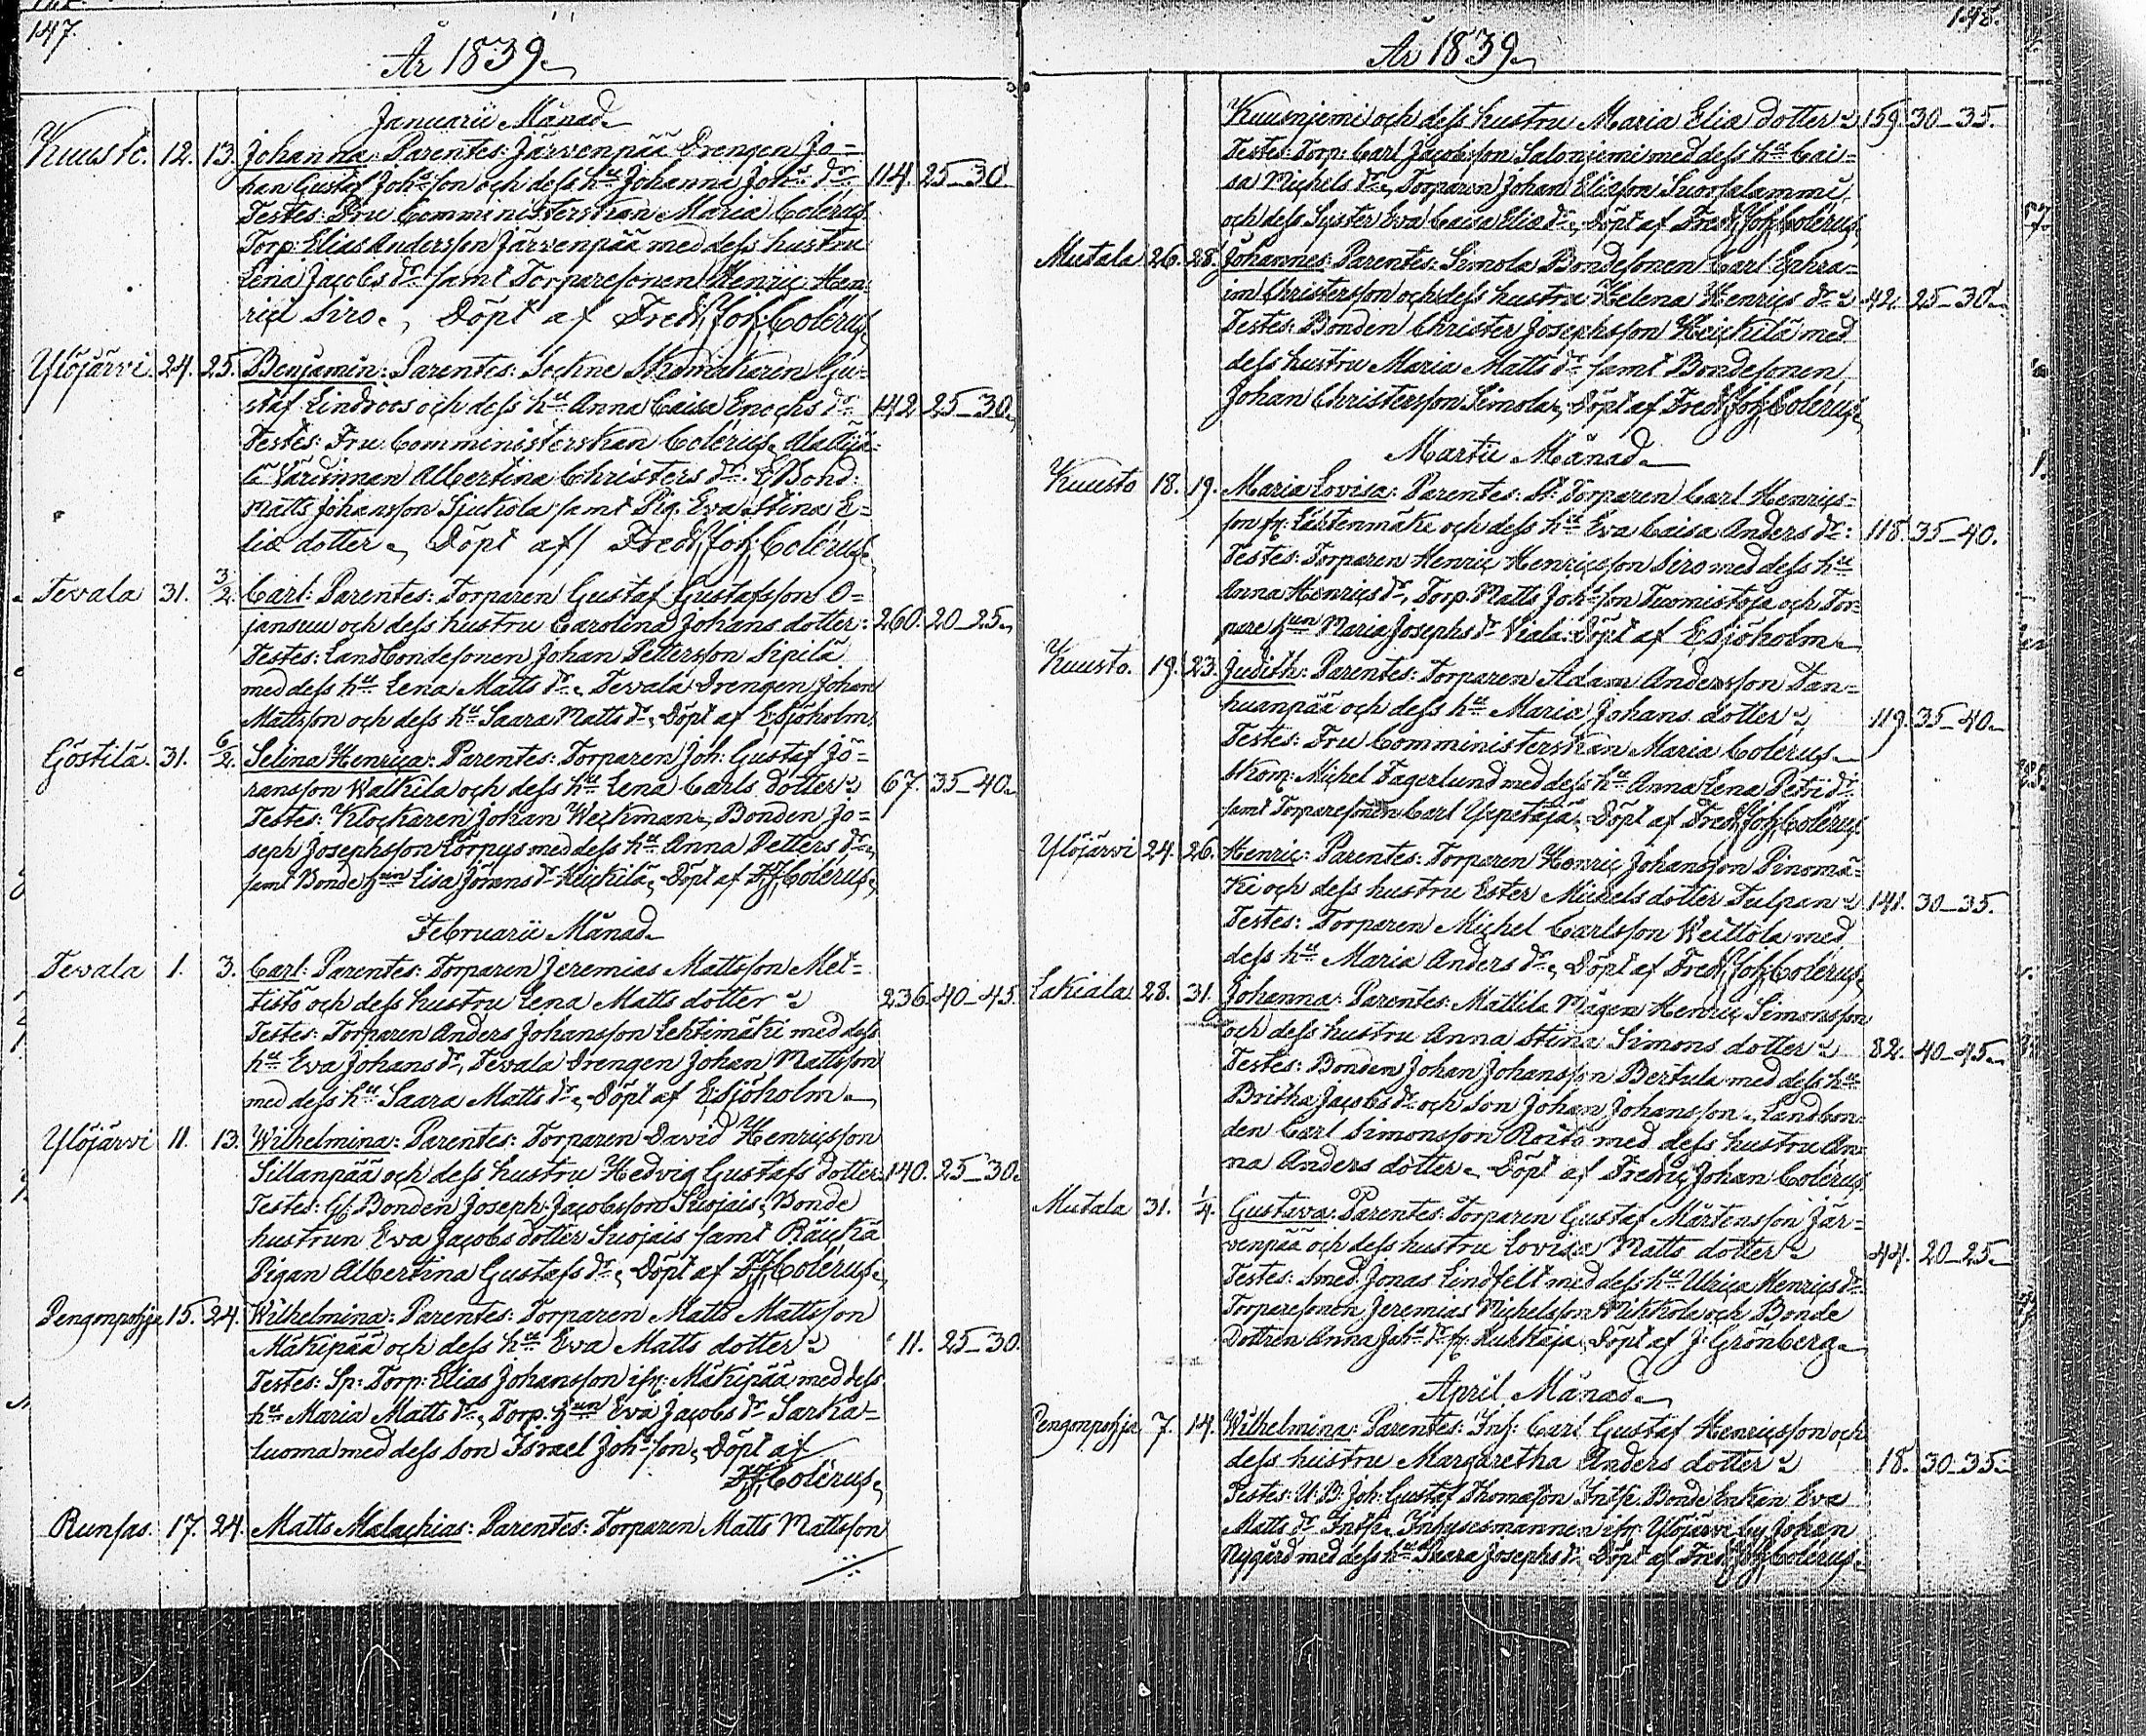 147.
År 1839.
Januarii Månad.
Kuusto. 12. 13. Johanna: Parentes: Järvenpää Drengen Jo=
han Gustaf Johsson och dess hu Johanna Johs dr 114. 25–30
Testes: Fru Comministerskan Maria Colérus
Torp: Elias Andersson Järvenpää med dess hustru
Lena Jacobs dr samt Torparesonen Henric Hen=
rici Siro. Döpt af Fred. Joh. Colérus
Ylöjärvi. 24. 25. Benjamin: Parentes: Sockne Skomakaren Gu=
staf Lindroos och dess hu Anna Caisa Enochs dr 142 25–30.
Testes: Fru Comministerskan Colérus,
Värdinnan Albertina Christers dr Bond:
Matts Johansson Sjukola samt Pig. Eva Stina E=
lie dotter. Döpt af Fred. Joh. Colérus
Tevala 31. 3/2. Carl: Parentes: Torparen Gustaf Gustafsson O=
jansuu och dess hustru Carolina Johans dotter: 260. 20–25.
Testes: Landbondesonen Johan Pettersson Sipilä
med dess hu Lena Matts dr. Tevala Drengen Johan
Mattsson och dess hu Saara Matts dr. Döpt af E. Sjöholm.
Göstilä. 31. 6/2. Selina Henrica: Parentes: Torparen Joh: Gustaf Jö=
ransson Walkila och dess hu Lena Carls dotter 67. 35–40.
Testes: Klockaren Johan Weckman, Bonden Jo=
seph Josephsson Törpys med dess hu Anna Petters dr.
samt Bonde hun Lisa Jörans dr Keickilä. Döpt af F.J. Colérus.
Februarii Månad.
Tevala 1. 3. Carl: Parentes: Torparen Jeremias Mattsson Met=
tistö och dess hustru Lena Matts dotter 236. 40–45.
Testes: Torparen Anders Johansson Lehtimäki med dess
hu Eva Johans dr, Tevala Drengen Johan Mattsson
med dess hu Saara Matts dr. Döpt af E. Sjöholm.
Ylöjärvi 11. 13. Wilhelmina: Parentes: Torparen David Henricsson
Sillanpää och dess hustru Hedvig Gustafs dotter. 140. 25–30.
Testes: Gf: Bonden Joseph Jacobsson Suojais, Bonde
hustrun Eva Jacobs dotter Suojais samt Räickä
Pigan Albertina Gustafs dr. Döpt af F.J. Colérus.
Pengonpohja 15. 24. Wilhelmina: Parentes: Torparen Matts Mattsson
Mäkipää och dess hu Eva Matts dotter 11. 25–30.
Testes: Sp: Torp: Elias Johansson ifr: Mäkipää med dess
hu Maria Matts dr. Torp. hun Eva Jacobs dr Sarka=
luoma med dess son Israel Johsson. Döpt af
F.J. Colérus.
Runsas. 17. 24. Matts Malachias: Parentes: Torparen Matts Mattsson
148.
År 1839.
Kuusnjemi och dess hustru Maria Elia dotter 159. 30–35.
Testes: Torp: Carl Jacobsson Salonjemi med dess hu Cai=
sa Michels dr. Torparen Johan Eliasson Suorsalammi,
och dess Syster Eva Caisa Elia dr. Döpt af Fred. Joh. Colérus.
Mutala 26. 28. Johannes: Parentes: Simola Bondesonen Carl Ephra=
im Christersson och dess hustru Helena Henrics dr 42. 25–30.
Testes: Bonden Christer Josephsson Keickilä med
dess hustru Maria Matts dr samt Bondesonen
Johan Christersson Simola. Döpt af Fred. Joh. Colérus.
Martii Månad.
Kuusto 18. 19. Maria Lovisa: Parentes: St: Torparen Carl Henrics=
son fr: Lähtenmäke och dess hu Eva Caisa Anders dr: 118. 35–40.
Testes: Torparen Henric Henricsson Siro med dess hu
Anna Henrics dr, Torp. Matts Johsson Tuomistoja och Tor=
pare hun Maria Josephs dr Viala: Döpt af E. Sjöholm.
Kuusto. 19. 23. Judith: Parentes: Torparen Adam Andersson Tan=
huanpää och dess hu Maria Johans dotter 119. 35–40.
Testes: Fru Comministerskan Maria Colérus.
Skom: Michel Fagerlund med dess hu Anna Lena Petri dr
samt Torparesonen Carl Yppetäjä. Döpt af Fred. Joh. Colérus
Ylöjärvi 24. 26. Henric: Parentes: Torparen Henric Johansson Pinomä=
ki och dess hustru Ester Michels dotter Tulpan 141. 30–35.
Testes: Torparen Michel Carlsson Weittola med
dess hu Maria Anders dr. Döpt af Fred. Joh. Colérus.
Lakiala 28. 31. Johanna: Parentes: Mattila Mågen Henric Simonsson
och dess hustru Anna Stina Simons dotter 82. 40–45.
Testes: Bonden Johan Johansson Bertula med dess hu
Britha Jacobs dr och Son Johan Johansson. Landbon=
den Carl Simonsson Roitö med dess hustru An=
na Anders dotter. Döpt af Fredric Johan Colérus.
Mutala 31. 1/4. Gustava: Parentes: Torparen Gustaf Mårtensson Jär=
venpää och dess hustru Lovisa Matts dotter 44. 20–25.
Testes: Smed. Jonas Lindfelt med dess hu Ulrica Henrics dr.
Torparesonen Jeremias Michelsson Mikkola och Bonde
Dottren Anna Johs dr fr: Huhtaja. Döpt af J: Grönberg.
April Månad.
Pengonpohja 7. 14. Wilhelmina: Parentes: Inh: Carl Gustaf Henricsson och
dess hustru Margaretha Anders dotter 18. 30–35.
Testes: U.B: Joh: Gustaf Thomasson Bonde Enkan Eva
Matts dr Inhysesmannen ifr: Ylöjärvi by Johan
Nygård med dess hu Saara Josephs dr. Döpt af Fred. Joh. Colérus.